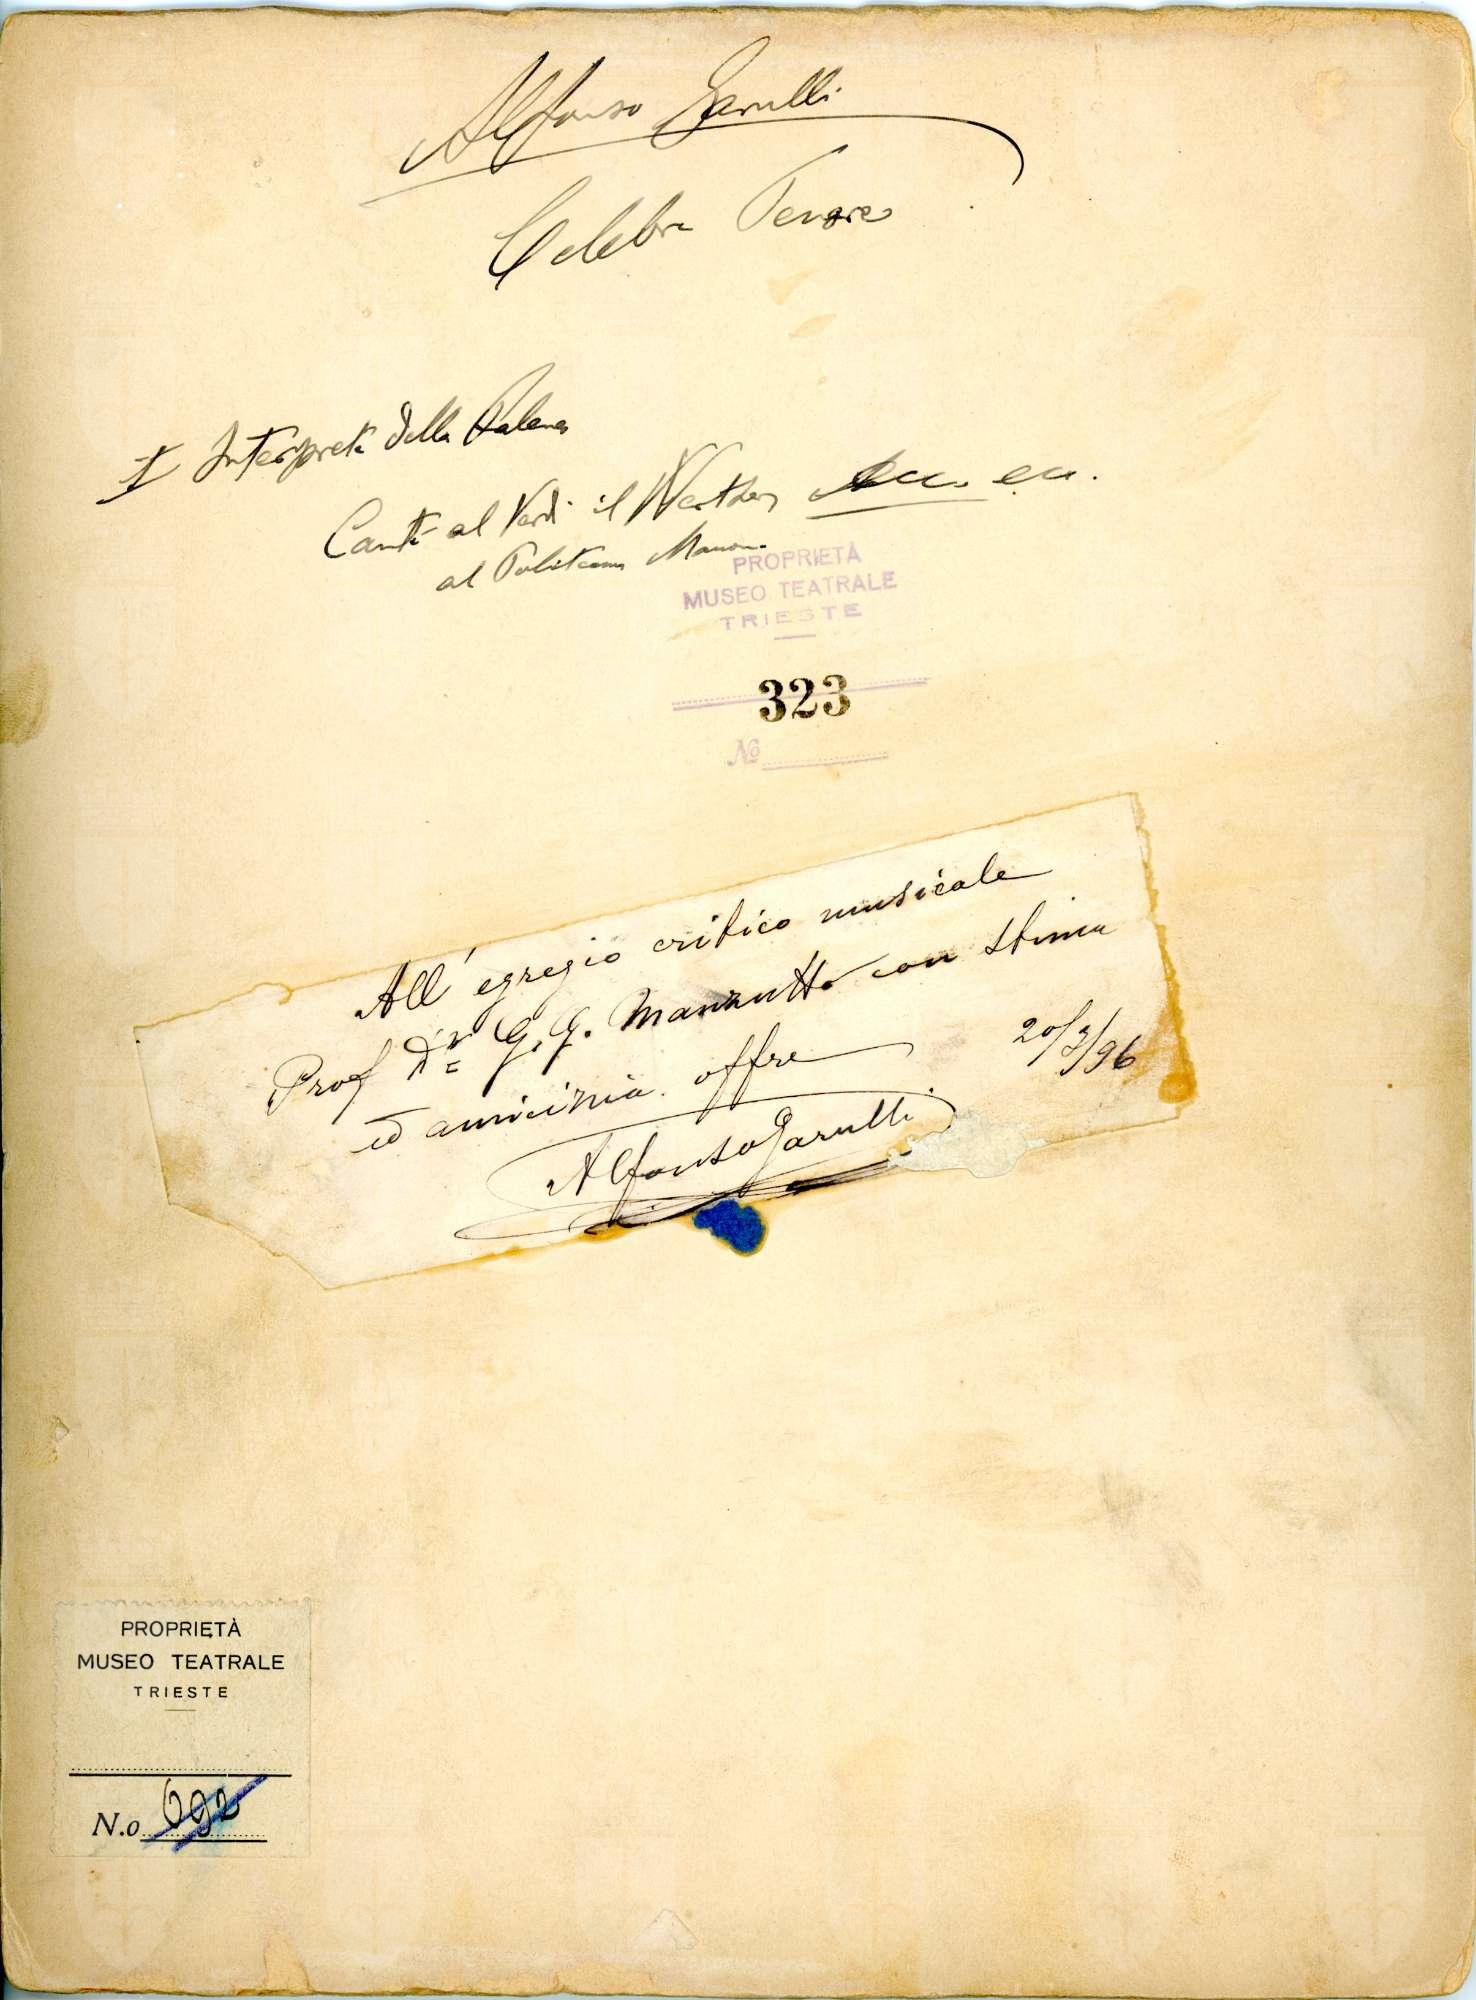 Alfonso Garulli
Celebre Tenore
I Interprete della
Cantò al Verdi il Werther ecc. ecc.
al Politeama Manon
PROPRIETÀ
MUSEO TEATRALE
TRIESTE
323
No
All' egregio critico musicale
Prof Dr. G. G. Manzutto con stima
ed amicizia offre
20/3/96
Alfonso Garulli
PROPRIETÀ
MUSEO TEATRALE
TRIESTE
N.o 692